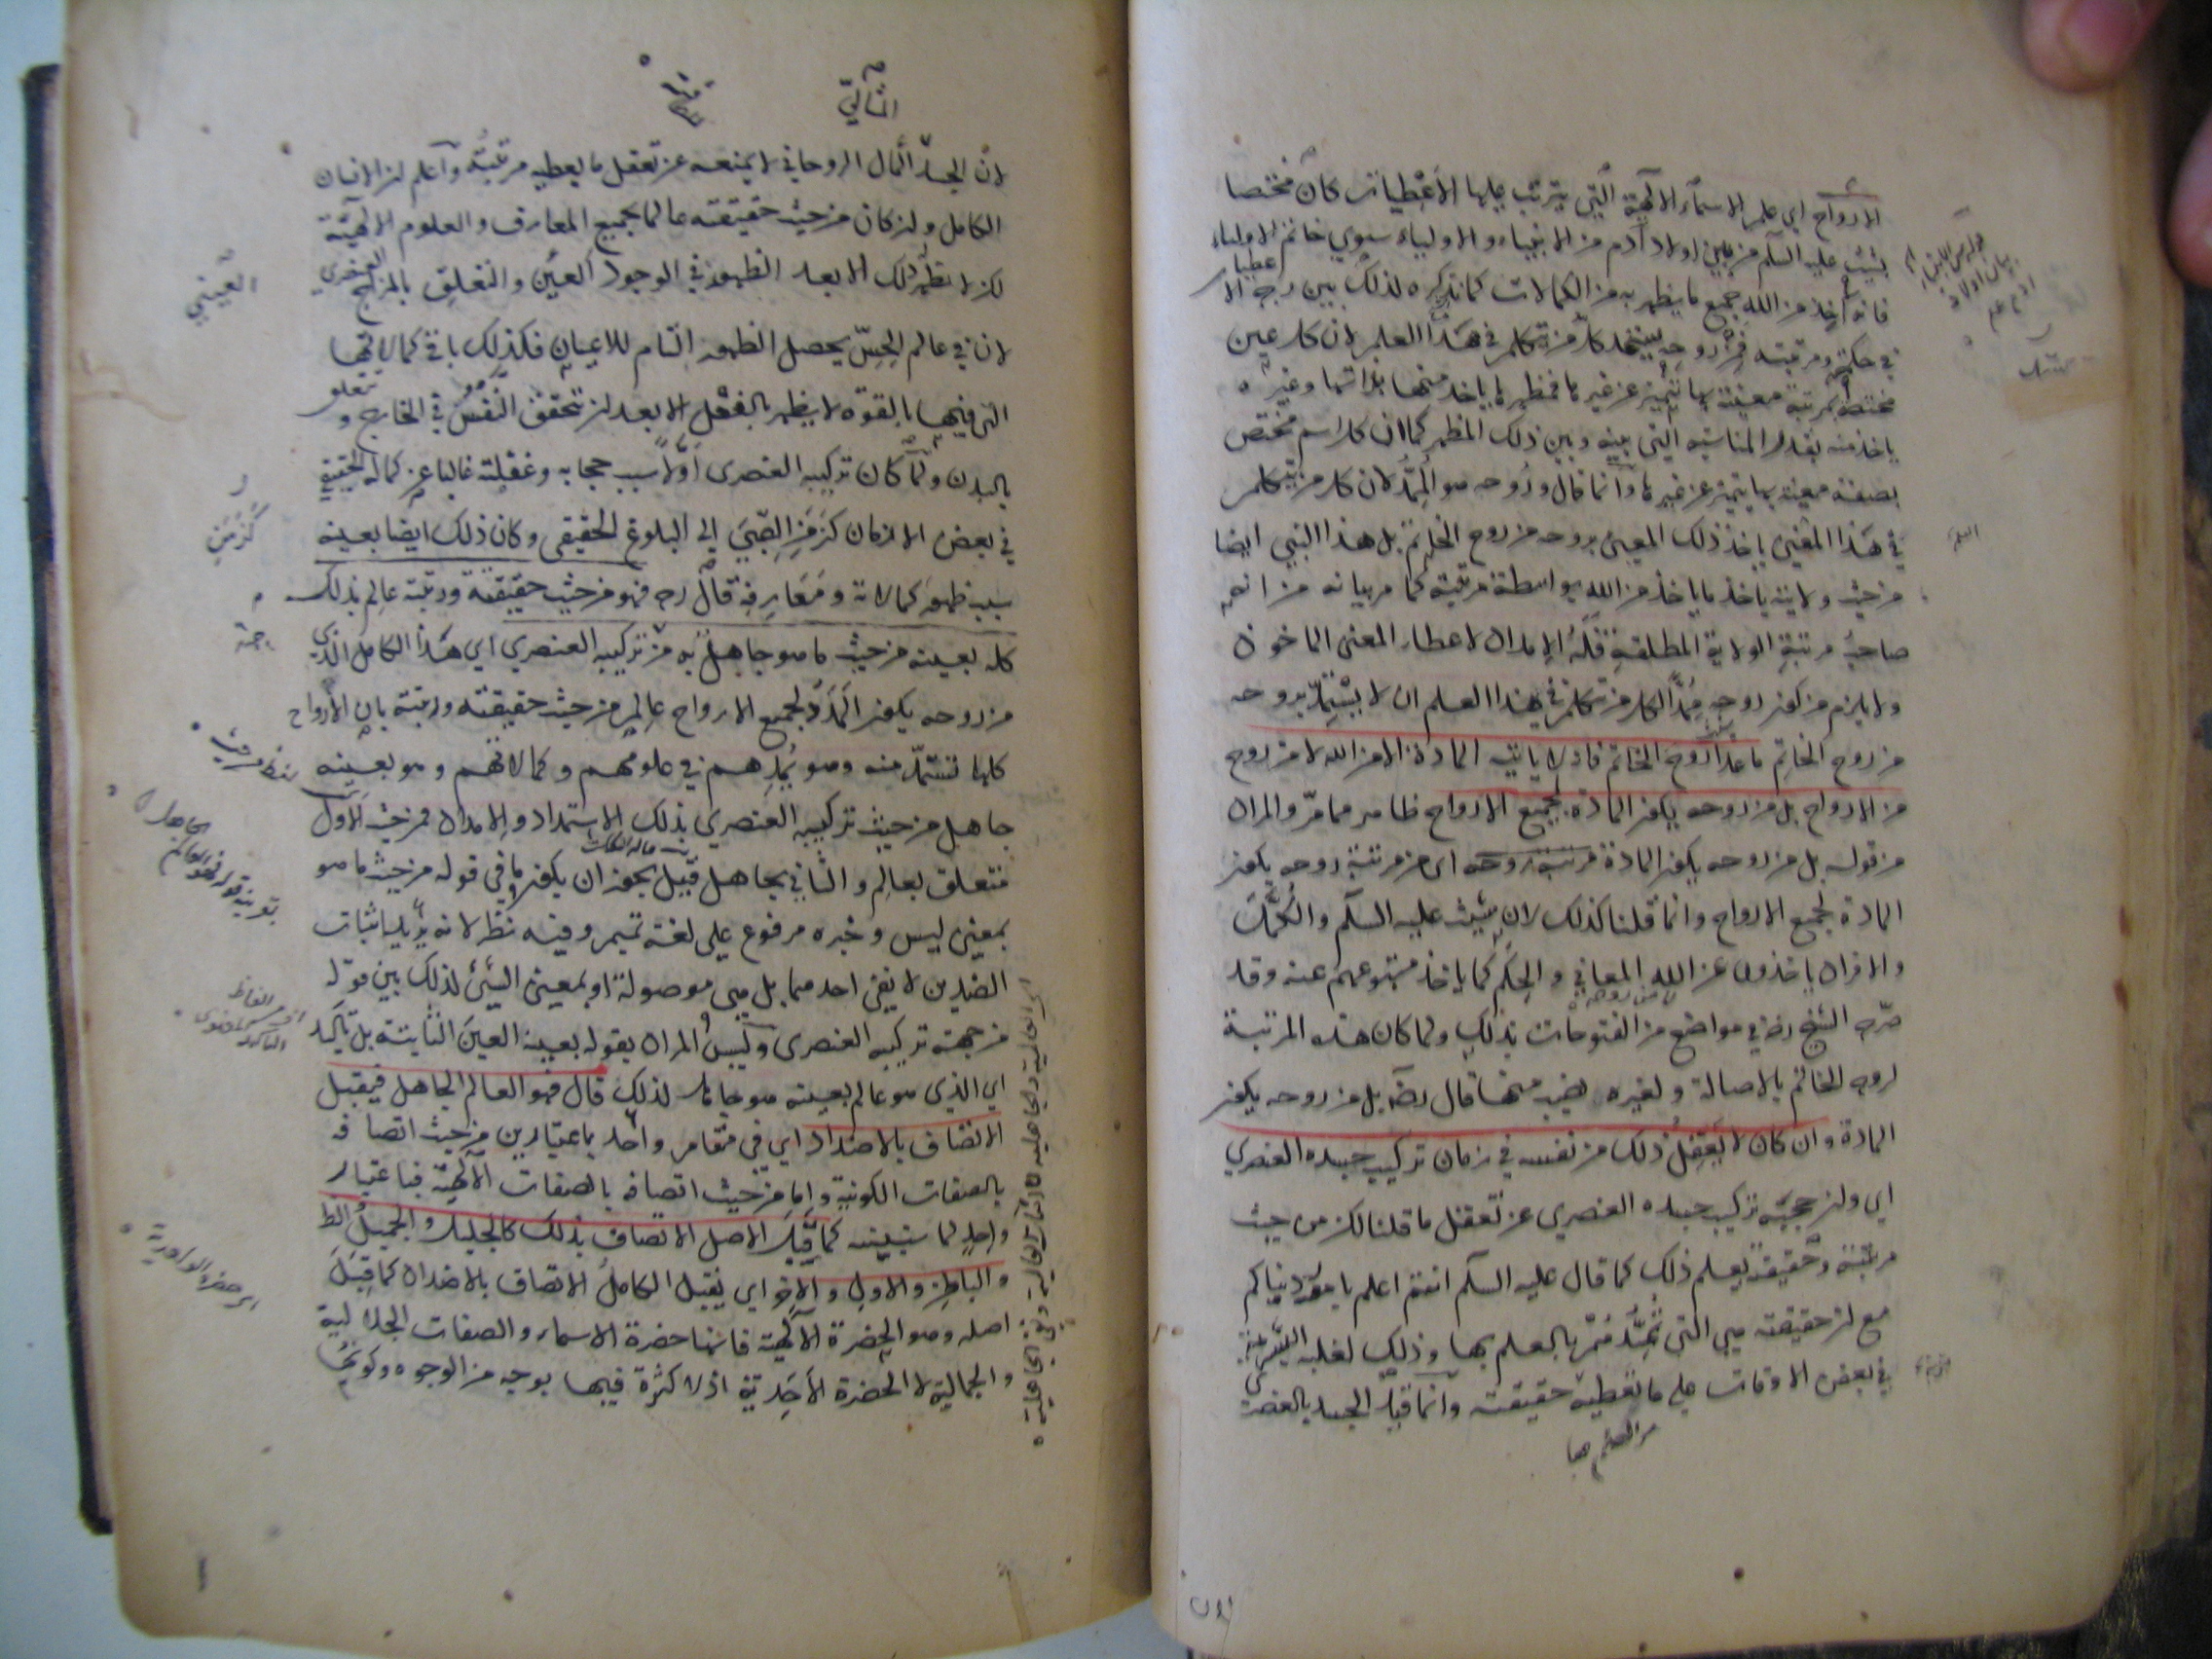 الارواح اي علم الاسماء الالهية التي يترتب عليها الاعطيات كان مختصا
بشيث عليه السلم من بين اولاد آدم من الانبياء والاولياء سوي خاتم الاولياء
فانه آخذ من الله جميع ما يظهر به من الكمالات كما نذكره لذلك بين رجه الا
عطيات
في حكمته ومرتبته فمن روحه يستمد كل من تكلم في هذا العلم لان كل عين
مختصة بمرتبة معينة بها تتميز عن غيرها فمظهرها ياخذ منها بذاتها وغيره
ياخذ منه بقدر المناسبة التي بينه وبين ذلك المظهر كما ان كل اسم مختص
بصفة معينة بها يتميز عن غيرها وانما قال وروحه هو الممد لان كل من يتكلم
في هذا المعنى ياخذ ذلك المعنى بروحه من روح الخاتم بل هذا النبي ايضا
من حيث ولايته ياخذ ما ياخذ من الله بواسطة مرتبته كما مر بيانه من انه
صاحب مرتبة الولاية المطلقة فله الامداد لاعطاء المعنى الماخوذ
ولا يلزم من كون روحه ممدا لكل من تكلم في هذا العلم ان لا يستمد بروحه
من روح الخاتم ما عدا روح الخاتم فانه لا ياتيه المادة الا من الله لا من روح
من الارواح بل من روحه يكون المادة لجميع الارواح ظاهر مما مر والمراد
من قوله بل من روحه يكون المادة مرتبة روحه اى من مرتبة روحه يكون
المادة لجميع الارواح وانما قلنا كذلك لان شيث عليه السلم والكمل
والافراد ياخذون عن الله المعاني والحكم كما ياخذ متبوعهم عنه وقد
صرح الشيخ رض في مواضع من الفتوحات بذلك ولما كان هذه المرتبة
لروح الخاتم بالاصالة ولغيره نصيب منها قال رضه بل من روحه يكون
المادة وان كان لا يعقل ذلك من نفسه في زمان تركيب جسده العنصري
اي وان حجبه تركيب جسده العنصري عن تعقل ما قلنا لكن من حيث
مرتبته وحقيقته يعلم ذلك كما قال عليه السلم انتم اعلم بامور دنياكم
مع ان حقيقته هي التي تمد بالعلم بها وذلك لغلبة البشرية
في بعض الاوقات على ما تعطيه حقيقته وانما قيد الجسد بالعنصري
التالي
لان الجسد المثال الروحاني لا يمنعه عن تعقل ما يعطيه مرتبته واعلم ان الانسان
الكامل وان كان من حيث حقيقته عالما بجميع المعارف والعلوم الالهية
لكن لا يظهر ذلك الا بعد الظهور في الوجود العيني والتعلق بالمزاج العنصري
لان في عالم الحس يحصل الظهور التام للاعيان فكذلك باقي كمالاتها
التي فيها بالقوة لا يظهر بالفعل الا بعد ان تتحقق النفس في الخارج وتتعلق
بالبدن ولما كان تركيبه العنصرى اولا سبب حجابه وغفلته غالبا عن كماله الحقيقي
في بعض الازمان كزمن الصبي الى البلوغ الحقيقي وكان ذلك ايضا بعينه
سبب ظهور كمالاته ومعارفه قال رح فهو من حيث حقيقته ورتبته عالم بذلك
كله بعينه من حيث ما هو جاهل به من تركيبه العنصري اي هذا الكامل الذي
من روحه يكون المدد لجميع الارواح عالم من حيث حقيقته ورتبته بان الارواح
كلها تستمد منه وهو يمدهم في علومهم وكمالاتهم وهو بعينه
جاهل من حيث تركيبه العنصري بذلك الاستمداد والامداد فمن حيث الاول
متعلق بعالم والثاني بجاهل قيل يجوز ان يكون ما في قوله من حيث ما هو
بمعنى ليس وخبره مرفوع على لغة تميم وفيه نظر لانه يريد اثبات
الضدين لا نفى احدهما بل هى موصولة او بمعنى الشيئ لذلك بين قوله
من جهة تركيبه العنصرى وليس المراد بقوله بعينه العين الثابتة بل تاكيد
اي الذي هو عالم بعينه هو جاهل لذلك قال فهو العالم الجاهل فيقبل
الاتصاف بالاضداد اي في مقام واحد باعتبارين من حيث اتصافه
بالصفات الكونية واما من حيث اتصافه بالصفات الالهية فباعتبار
واحد لما سنبينه كما قبل الاصل الاتصاف بذلك كالجليل والجميل والظ
والباطن والاول والآخر اي يقبل الكامل الاتصاف بالاضداد كما قبل
اصله وهو الحضرة الالهية فانها حضرة الاسماء والصفات الجلالية
والجمالية لا الحضرة الاحدية اذ لا كثرة فيها بوجه من الوجوه وكونها
العيني
كزمن